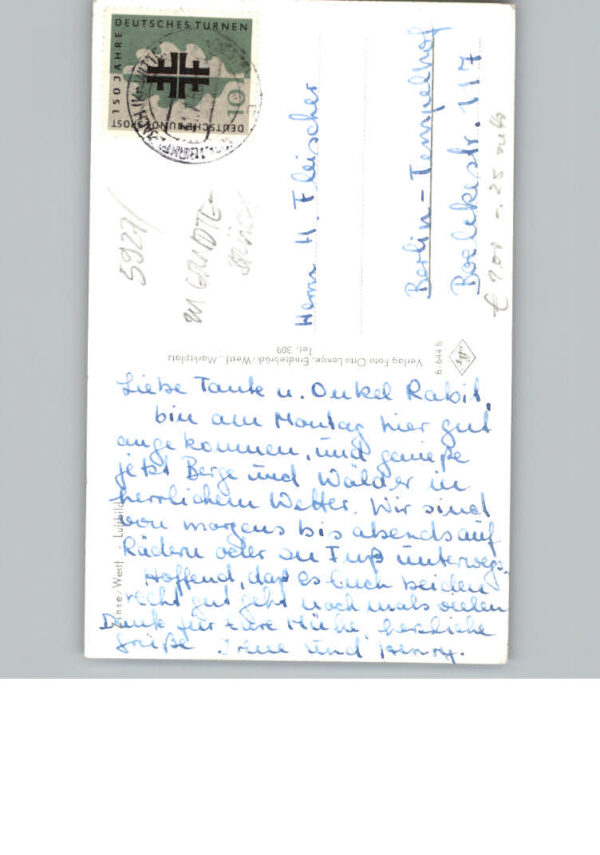 150 JAHRE
DEUTSCHES TURNEN
DEUTSCHE BUNDESPOST
10
5927/
Herrn H. Fleischer
Berlin-Tempelhof
Boelckestr. 117
Verlag Foto Otto Lange, Erndtebrück-Westf., Marktplatz
Tel. 309
Westf. - Luftbild
Liebe Tante u. Onkel Rabit,
bin am Montag hier gut
angekommen, und genieße
jetzt Berge und Wälder in
herrlichem Wetter. Wir sind
von morgens bis abends auf
Rädern oder zu Fuß unterwegs.
Hoffend, daß es Euch beiden
recht gut geht nochmals vielen
Dank für Eure Mühe, herzliche
Grüße Irene und Henry.